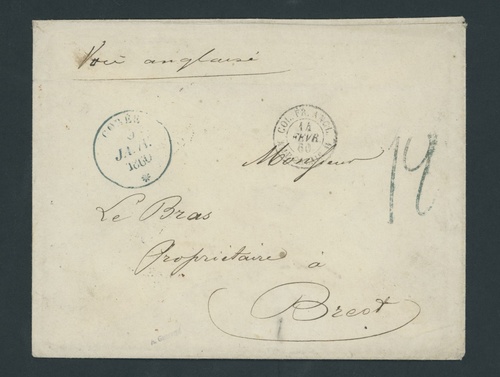 Voie anglaise
JANV.
1860
COL. FR. ANGL.
14
FEVR
60
Monsieur
Le Bras
Propriétaire à
Brest